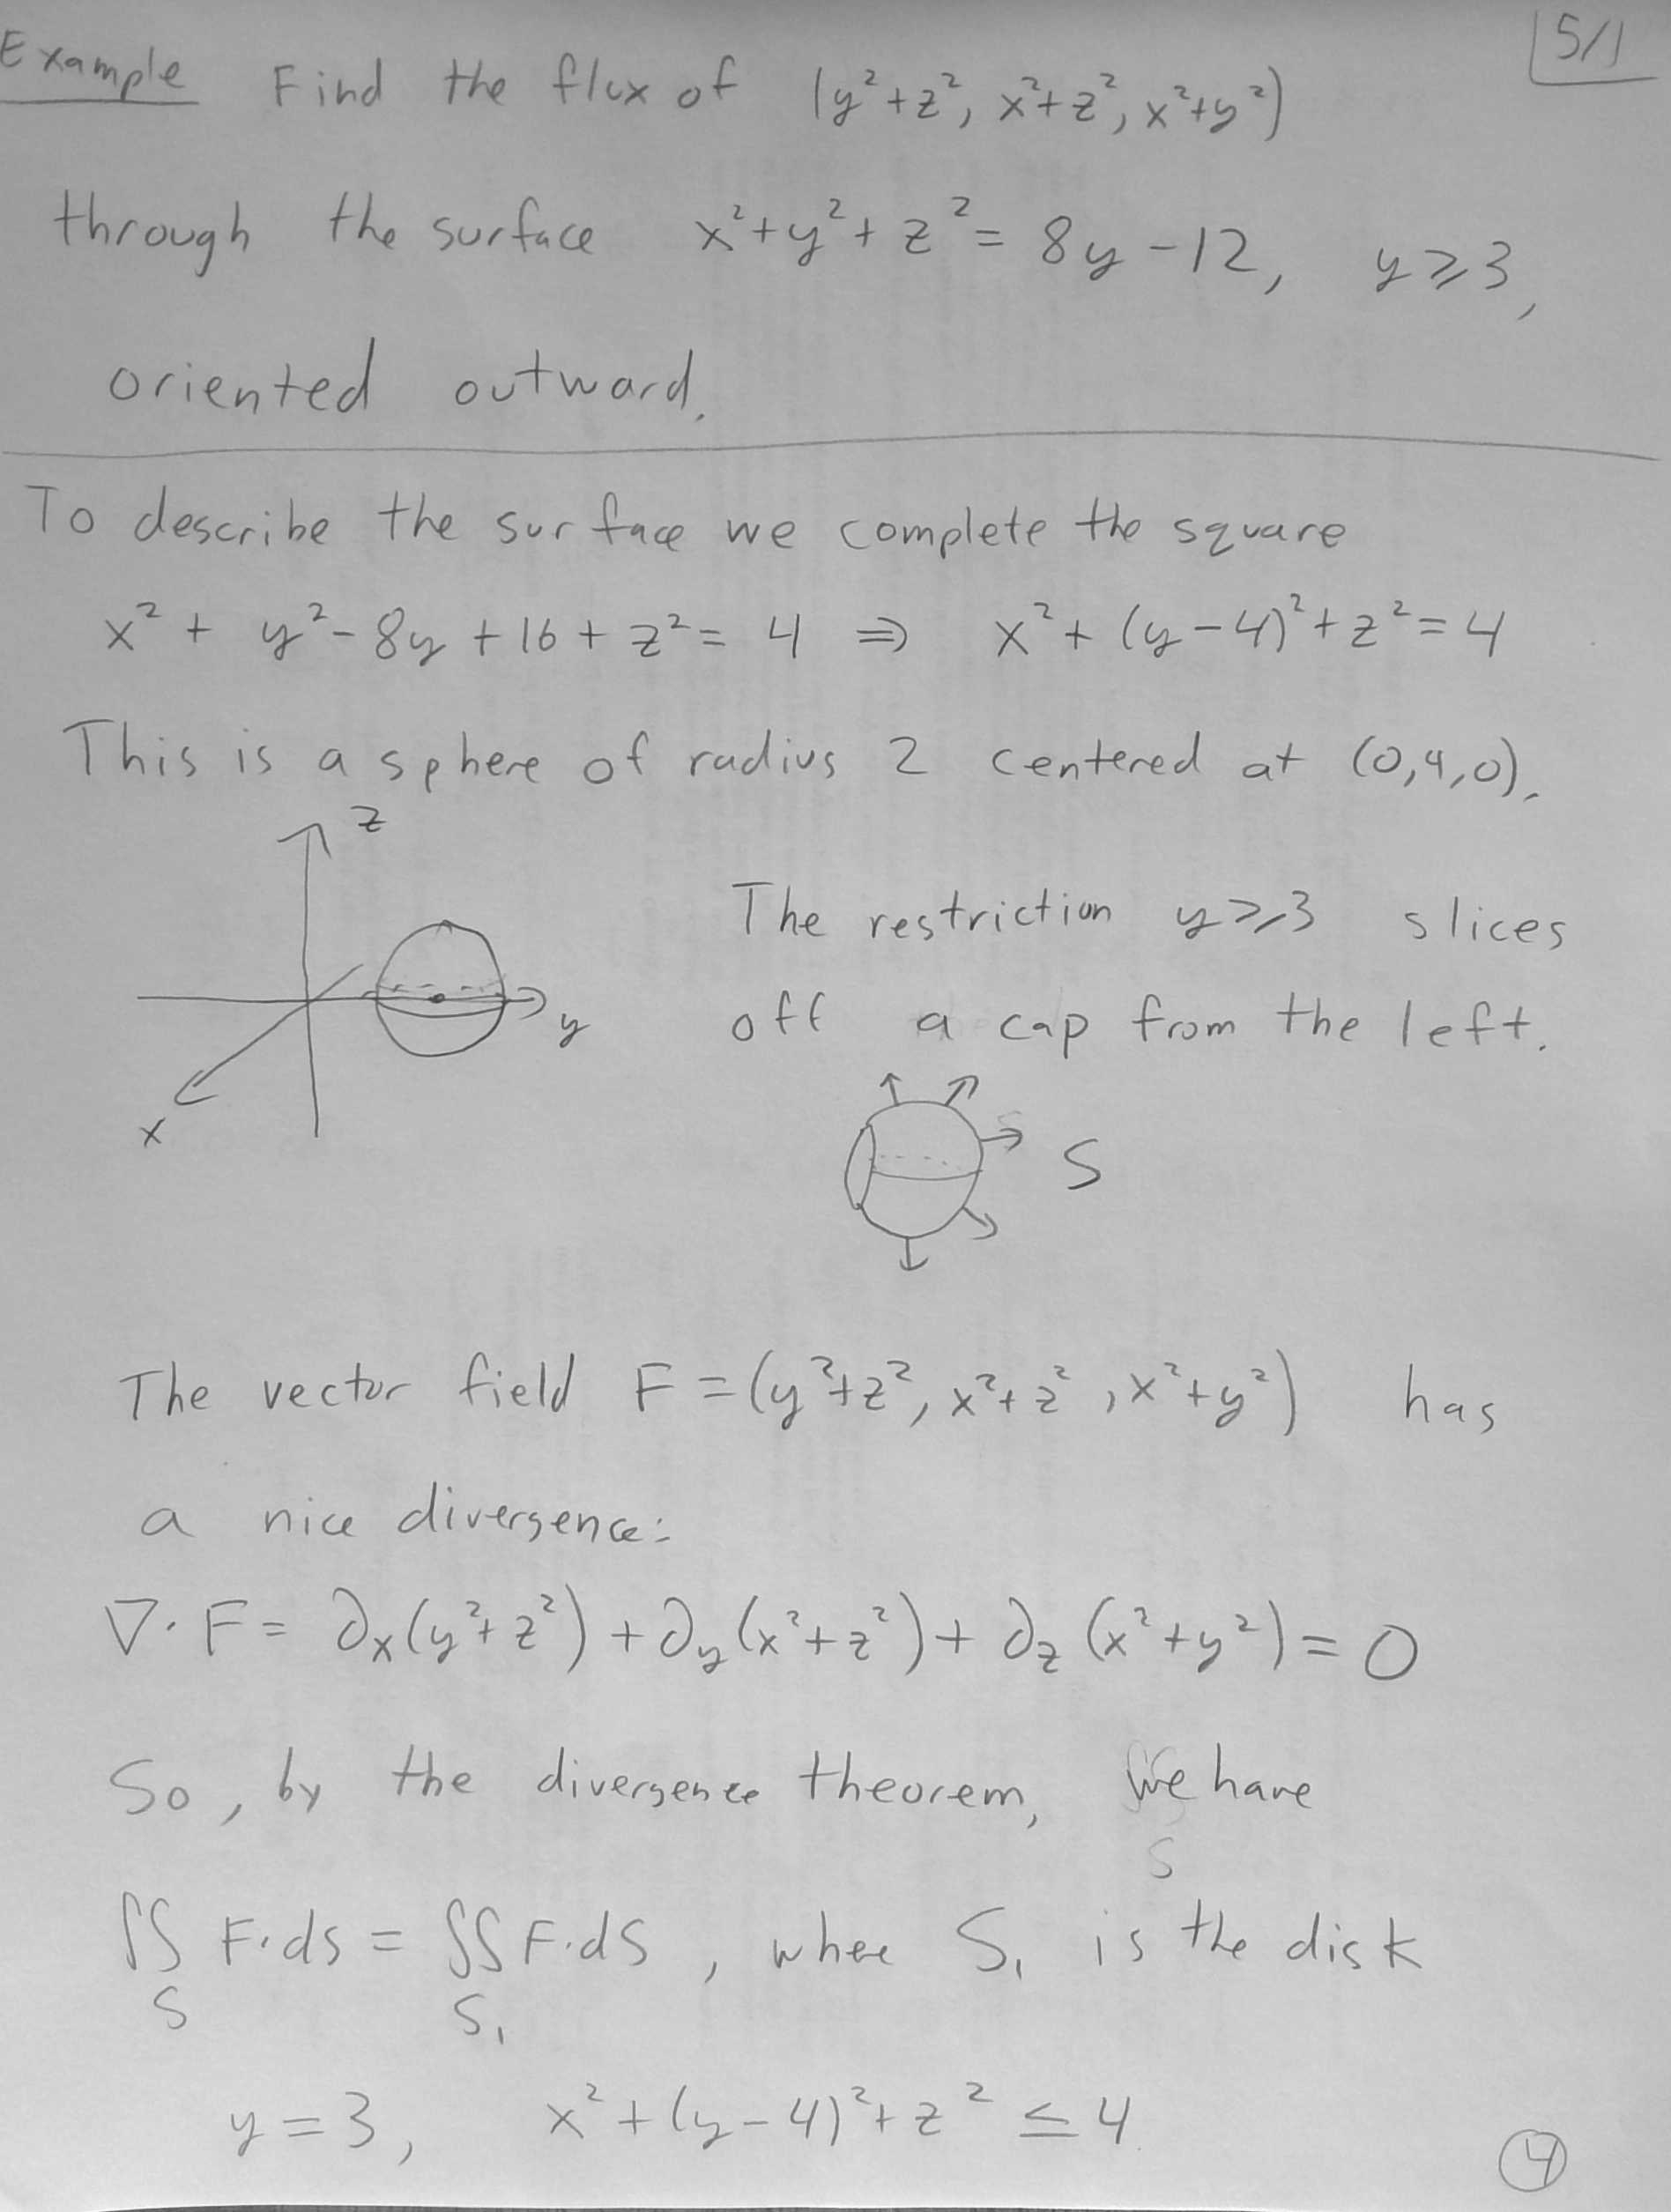 Example Find the flux of (y²+z², x²+z², x²+y²)
5/1
through the surface x²+y²+z²= 8y-12, y⩾3,
oriented outward.
To describe the surface we complete the square
x² + y²-8y+16+z²= 4 ⇒ x²+(y-4)²+z²=4
This is a sphere of radius 2 centered at (0,4,0).
z
y
x
The restriction y⩾3 slices
off a cap from the left.
S
The vector field F=(y²+z², x²+z², x²+y²) has
a nice divergence:
∇·F= ∂x(y²+z²)+∂y(x²+z²)+∂z(x²+y²)=0
So, by the divergence theorem, we have
∬ F·dS = ∬ F·dS, where S₁ is the disk
S S₁
y=3, x²+(y-4)²+z² ≤4
4